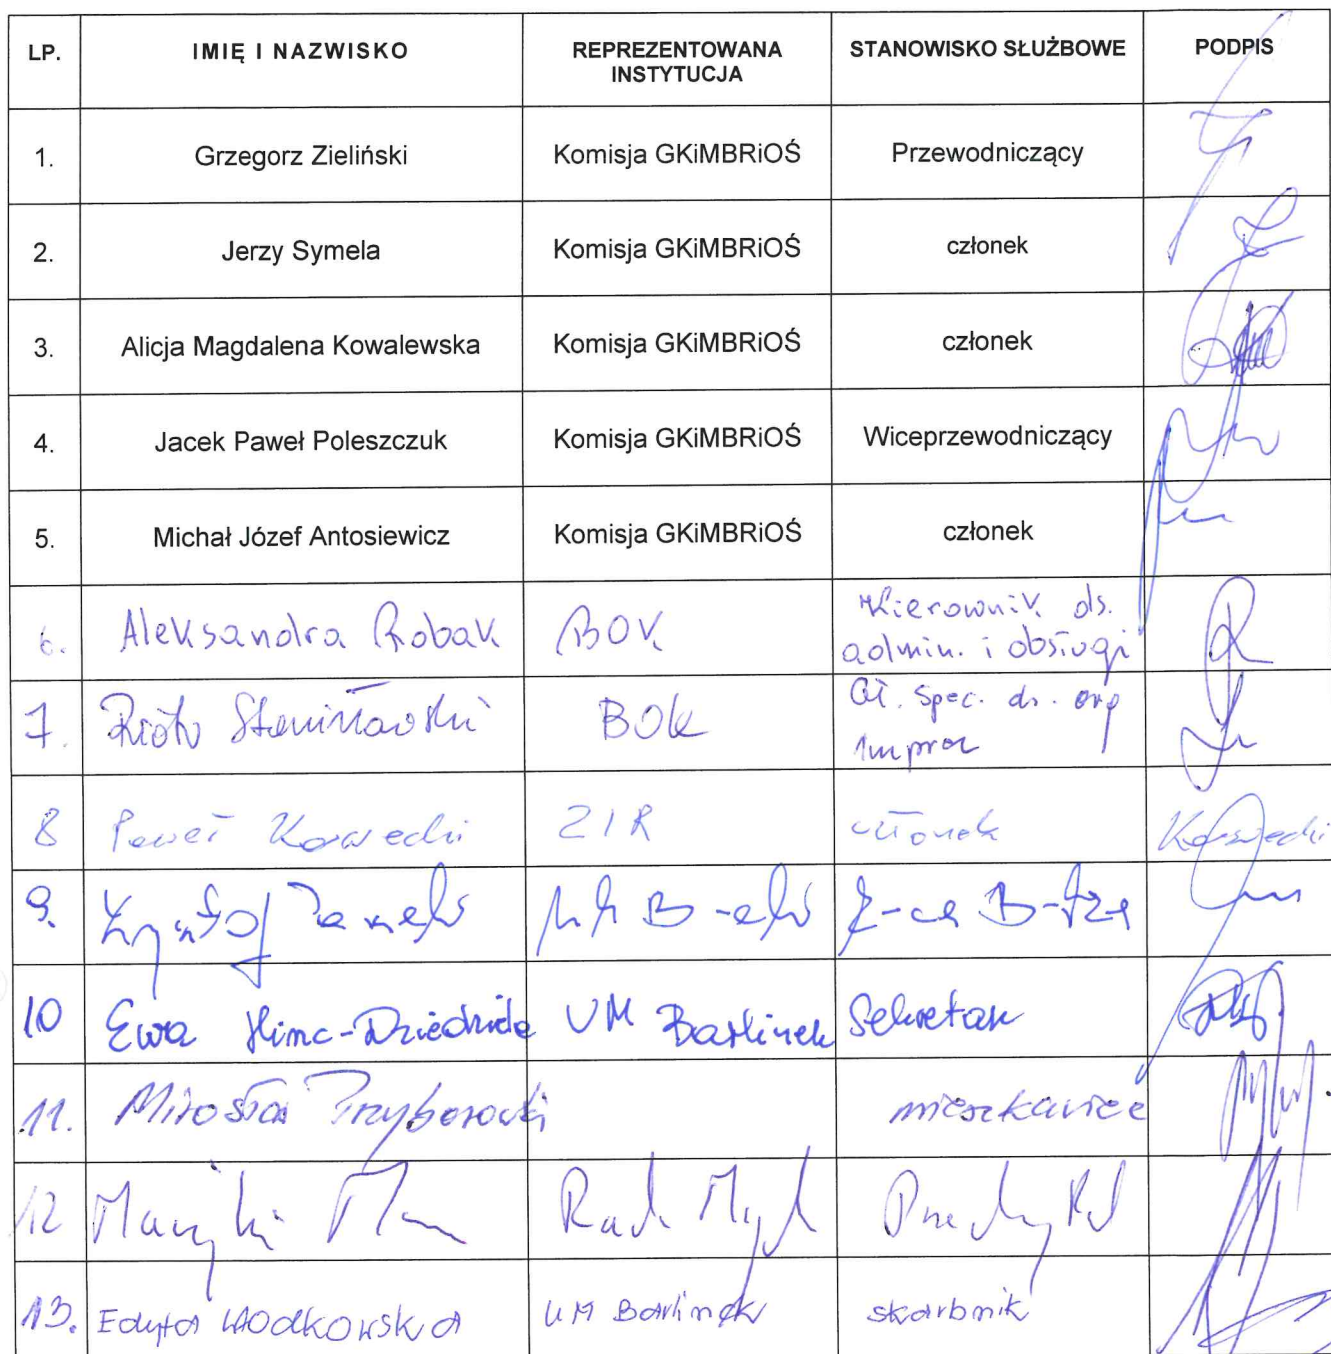 LP. IMIĘ I NAZWISKO REPREZENTOWANA INSTYTUCJA STANOWISKO SŁUŻBOWE PODPIS
1. Grzegorz Zieliński Komisja GKiMBRiOŚ Przewodniczący
2. Jerzy Symela Komisja GKiMBRiOŚ członek
3. Alicja Magdalena Kowalewska Komisja GKiMBRiOŚ członek
4. Jacek Paweł Poleszczuk Komisja GKiMBRiOŚ Wiceprzewodniczący
5. Michał Józef Antosiewicz Komisja GKiMBRiOŚ członek
6. Aleksandra Robak BOK Kierownik ds.
admin. i obsługi
7. Piotr Stanisławski BOK Gł. spec. ds. org
imprez
8 Paweł Kawecki członek Kawecki
9. Krzysztof Z-ca B-tza
10 Ewa UM Barlinek Sekretarz
11. Mirosław Przyborowski mieszkaniec
12 Rada
13. Edyta UM Barlinek skarbnik